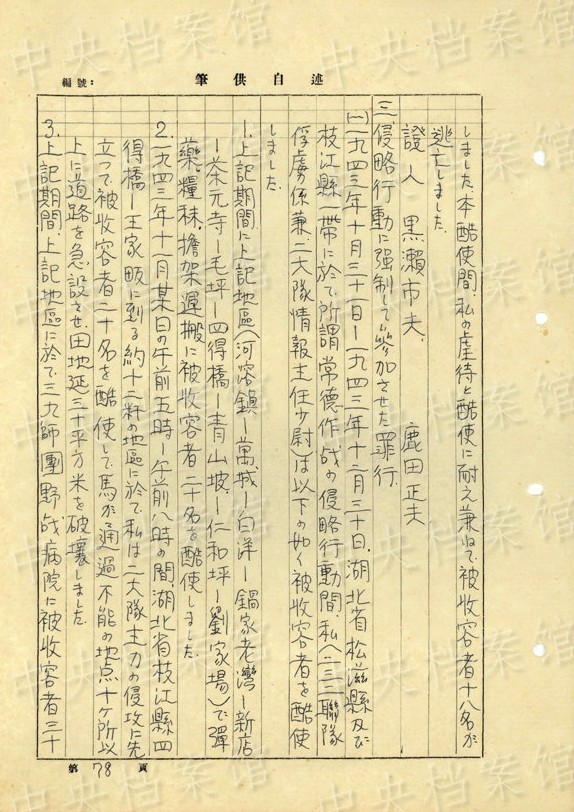 編號：
述自供筆
しました、本酷使間、私の虐待と酷使に耐え兼ねて被收容者十八名が
逃亡しました。
證人 黒瀬市夫、 鹿田正夫
三、侵略行動に强制して參加させた罪行、
(一)一九四三年十月三十一日—一九四三年十二月三十日、湖北省松滋縣及び
枝江縣一帶に於て所謂常德作战の侵略行動間、私(二三二聯隊
俘虜係兼二大隊情報主任少尉)は以下の如く被收容者を酷使
しました。
1. 上記期間に上記地區(河容鎮—萬城—白洋—鍋家老灣—新店
—茶元寺—毛坪—四得橋—青山坡—仁和坪—劉家場)で彈
藥、糧秣、擔架運搬に被收容者二十名を酷使しました。
2. 一九四三年十一月某日の午前五時—午前八時の間、湖北省枝江縣四
得橋—王家畈に到る約十二粁の地區に於て私は二大隊主力の侵攻に先
立つて被收容者二十名を酷使して馬が通過不能の地点十ヶ所以
上に道路を急設させ、田地延三十平方米を破壞しました。
3. 上記期間、上記地區に於て三九師團野战病院に被收容者三十
第 78 頁
中央档案馆